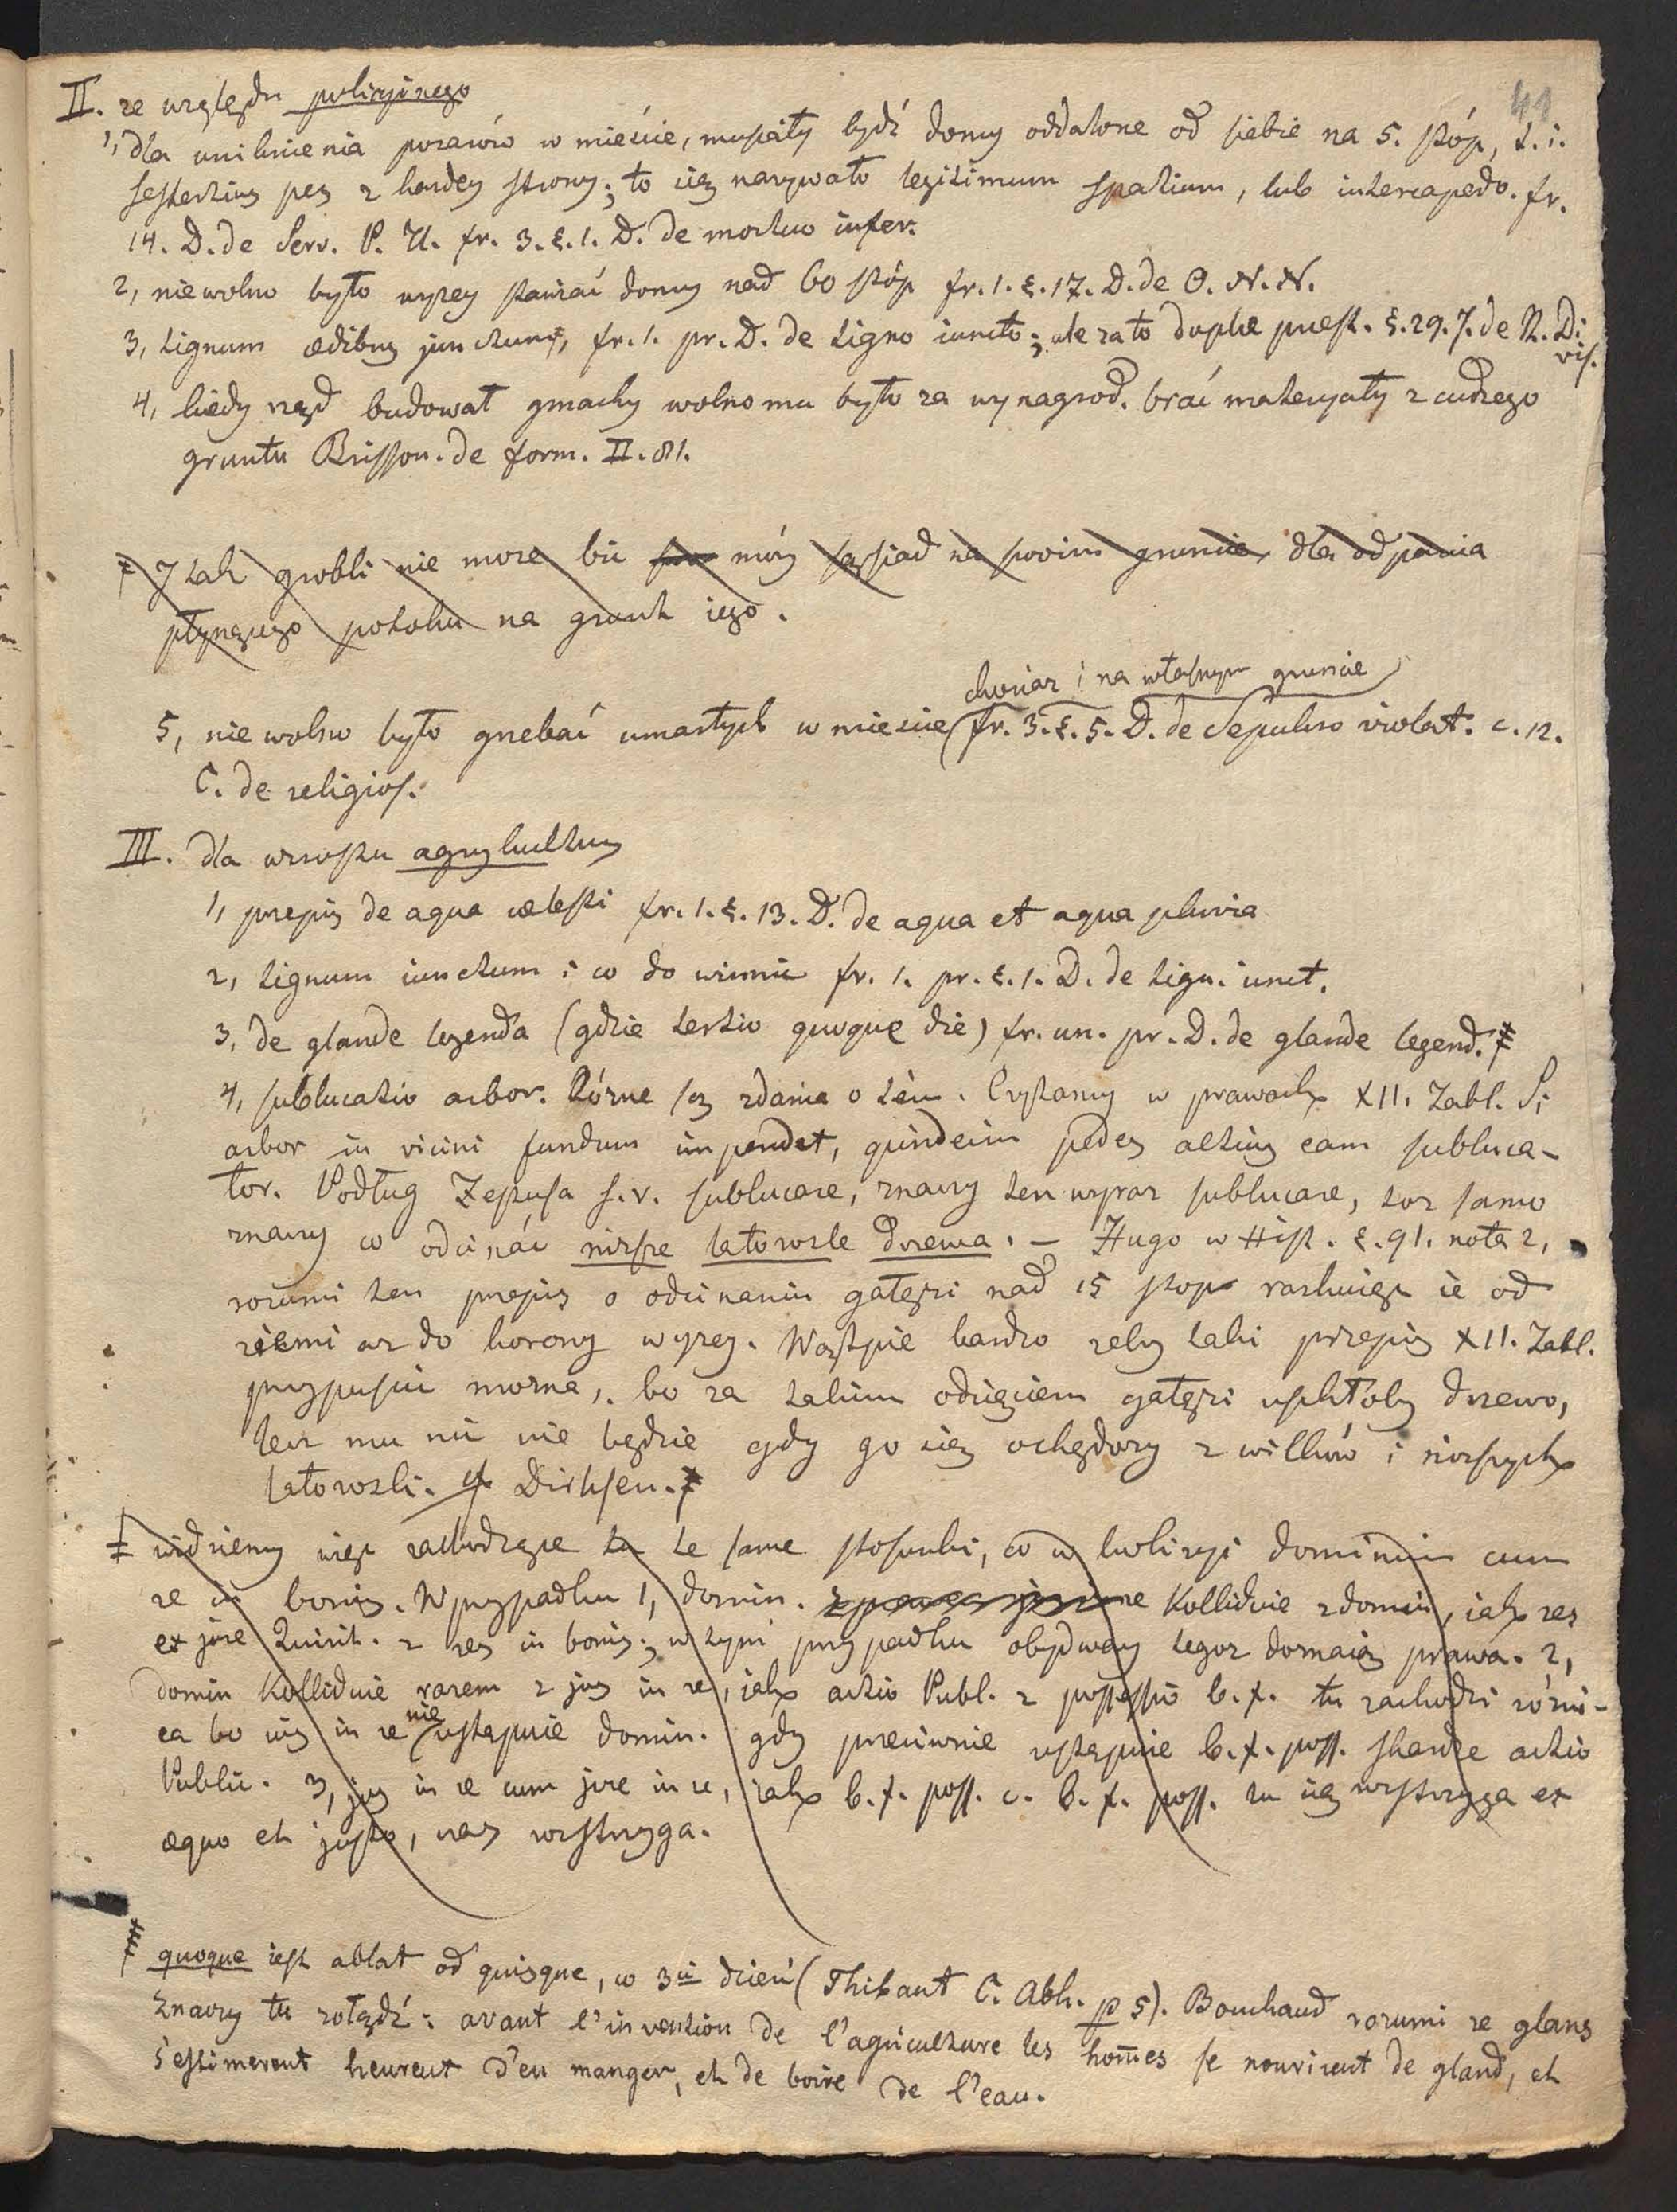 41
II. ze względu policyjnego
1, dla uniknienia pozarów w mieście, musiały bydź domy oddalone od siebie na 5. stóp, t. i.
sestertius pes z kazdey strony; to się nazywało legitimum spatium, lub intercapedo. fr.
14. D. de Serv. P. U. fr. 3. §. 1. D. de mortuo infer.
2, niewolno było wyzey stawiać domy nad 60 stóp fr. 1. §. 17. D. de O. N. N.
3, tignum ædibus junctum, fr. 1. pr. D. de tigno iuncto; ale za to duplæ præst. §. 29. J. de R. Di
vis.
4, kiedy rząd budował gmachy wolno mu było za wynagrod. brać materyały z cudzego
gruntu Brisson. de form. II. 81.
J tak grobli nie moze bić móy sąsiad na swoim gruncie, dla odparcia
płynącego potoku na grunt iego.
chociaz i na własnym gruncie
5, nie wolno było grzebać umarłych w miescie fr. 3. §. 5. D. de Sepulcro violat. c. 12.
C. de religios.
III. dla wzrostu agrykultury
1, przepis de aqua cælesti fr. 1. §. 13. D. de aqua et aqua pluvia
2, tignum iunctum i co do winnic fr. 1. pr. §. 1. D. de tign. iunct.
3, de glande legenda (gdzie tertio quoque die) fr. un. pr. D. de glande legend.
4, sublucatio arbor. Rózne są zdania o tém. Czytamy w prawach XII. Tabl. Si
arbor in vicini fundum impendet, quindecim pedes altius eam subluca-
tor. Podług Festusa s. v. sublucare, znaczy ten wyraz sublucare, toz samo
znaczy co odcinać nizsze latorosle drzewa. – Hugo w Hist. §. 91. nota 2,
rozumi ten przepis o odcinaniu gałęzi nad 15 stop rachuiąc ie od
ziemi az do korony wyzey. Wątpię bardzo zeby taki przepis XII. Tabl.
przypuścić mozna, bo za takim odcięciem gałęzi uschłoby drzewo,
lecz mu nic nie będzie gdy go się ochędozy z wilków i nizszych
latorosli. cf Dirksen.
widziemy więc zachodzące tu te same stosunki, co w kolizyi dominium cum
re in bonis. W przypadku 1, domin. Kolliduie z domin, iak res
ex jure Quirit. z res in bonis; w tym przypadku obydway tegoz doznaią prawa. 2,
domin Kolliduie razem z jus in re, iak actio Publ. z possessio b. f. tu zachodzi rózni-
ca bo ius in re nie ustępuie domin. gdy przeciwnie ustępuie b. f. poss. skardze actio
Public. 3, jus in re cum jure in re, iak b. f. poss. c. b. f. poss. tu się rozstrzyga ex
æquo et justo, rozstrzyga.
quoque iest ablat od quisque, co 3ci dzień (Thibaut C. Abh. p 5). Bouchaud rozumi ze glans
znaczy tu zołądź: avant l'invention de l'agriculture les hom̄es se nourirent de gland, et
s'estimerent heureut d'en manger, et de boire de l'eau.